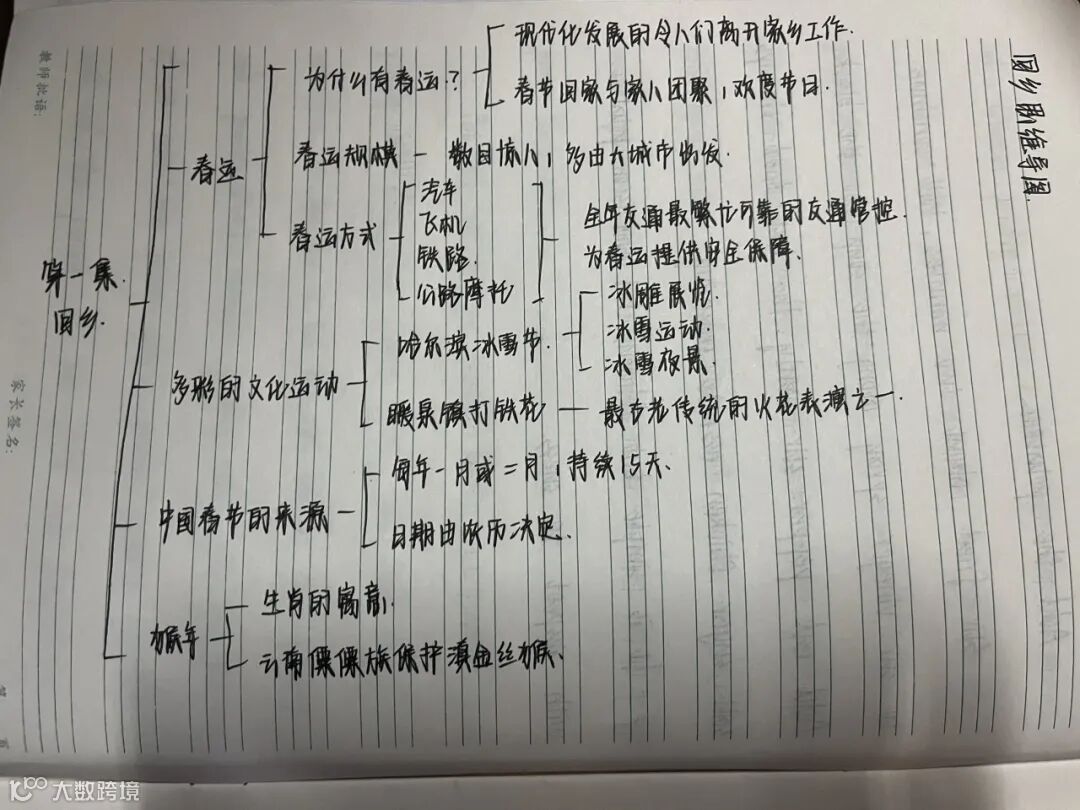 回乡思维导图
第一集
回乡.
春运
为什么有春运?
现代化发展的令人们离开家乡工作.
春节回家与家人团聚,欢度节日.
春运规模 — 数目惊人,多由大城市出发.
春运方式
汽车
飞机
铁路.
公路摩托
全年交通最繁忙可靠的交通管控.
为春运提供安全保障.
多彩的文化运动
哈尔滨冰雪节.
冰雕展览.
冰雪运动.
冰雪夜景.
暖泉镇打铁花 — 最古老传统的火花表演之一.
中国春节的来源
每年一月或二月,持续15天.
日期由农历决定.
猴年
生肖的寓意.
云南傈僳族保护滇金丝猴.
教师批语:
家长签名:
第 页
大数跨境